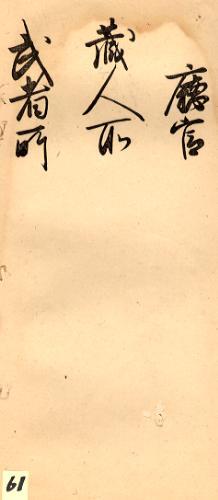 廳官
蔵人所
武者所
61